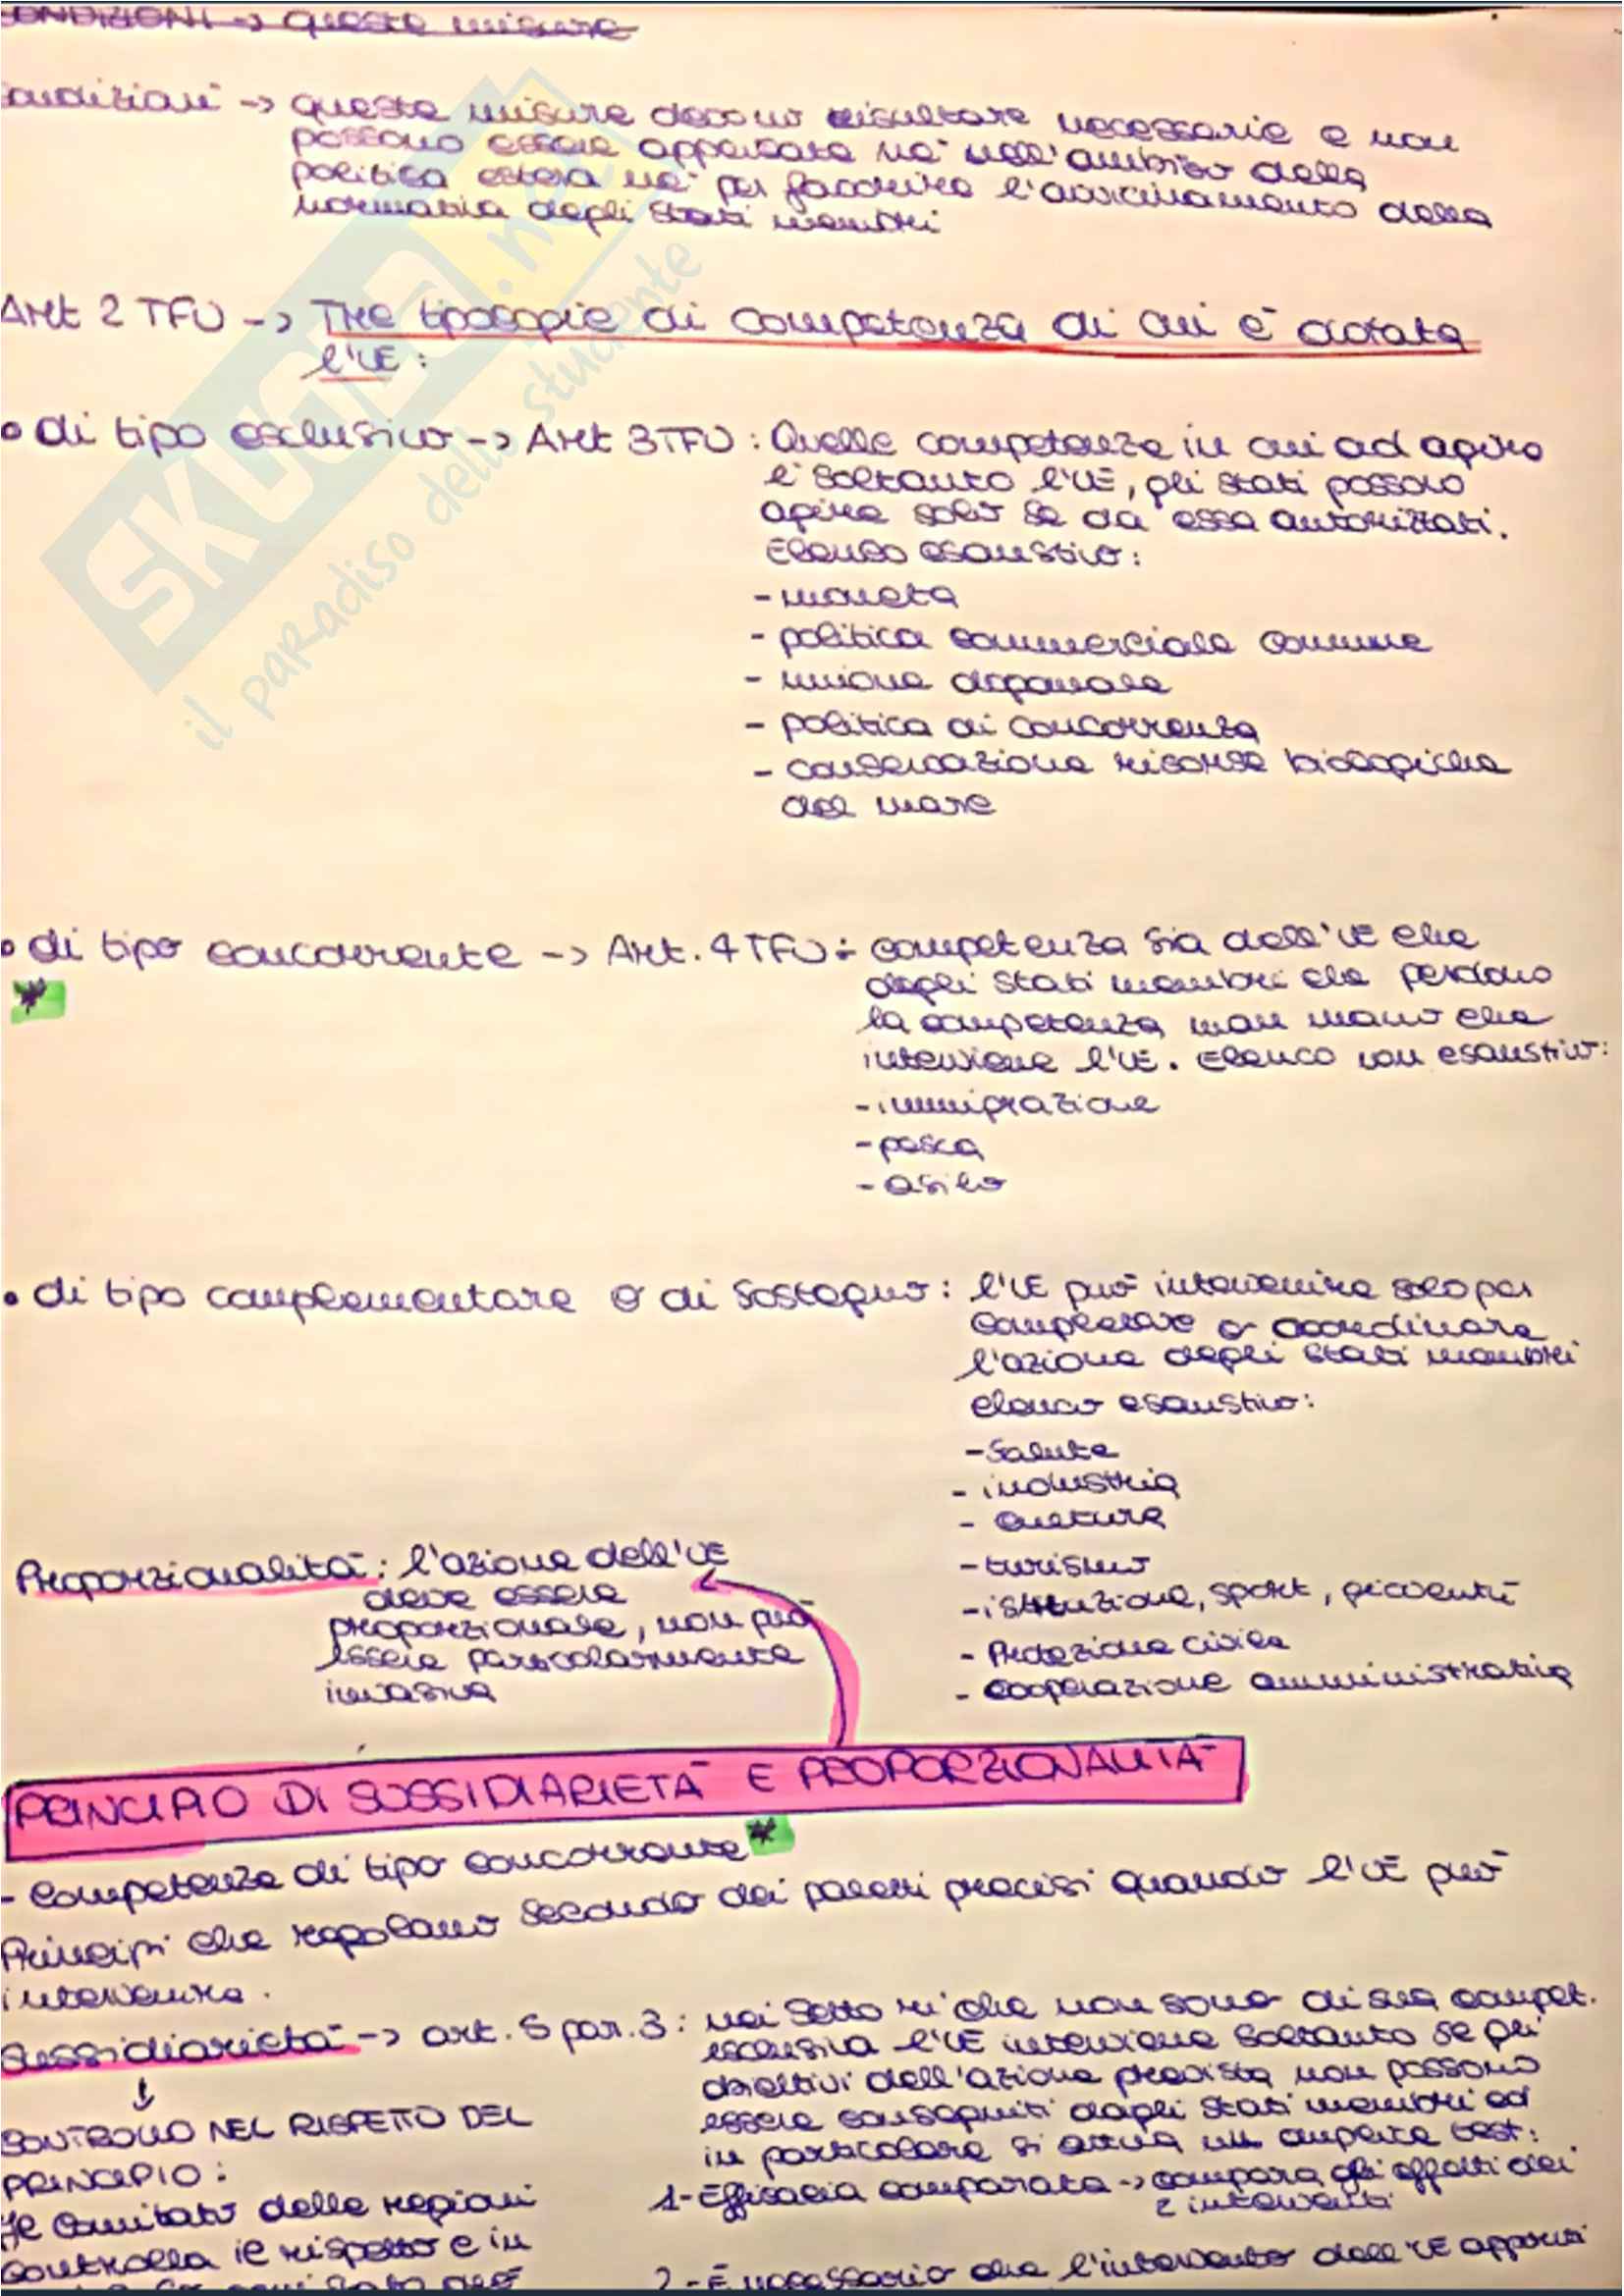 CONDIZIONI -> queste misure
Condizioni -> queste misure devono risultare necessarie e non
possono essere apportate né nell'ambito della
politica estera né per favorire l'avvicinamento della
normativa degli Stati membri
Art 2 TFU -> Tre tipologie di competenza di cui è dotata
l'UE:
• di tipo esclusivo -> Art 3 TFU: Quelle competenze in cui ad agire
è soltanto l'UE, gli stati possono
agire solo se da essa autorizzati.
Elenco esaustivo:
- moneta
- politica commerciale comune
- unione doganale
- politica di concorrenza
- conservazione risorse biologiche
del mare
• di tipo concorrente -> Art. 4 TFU: competenza sia dell'UE che
degli Stati membri che perdono
la competenza man mano che
interviene l'UE. Elenco non esaustivo:
- immigrazione
- pesca
- asilo
• di tipo complementare o di sostegno: l'UE può intervenire solo per
completare o coordinare
l'azione degli stati membri
elenco esaustivo:
- Salute
- industria
- cultura
- turismo
- istruzione, sport, gioventù
- Protezione civile
- cooperazione amministrativa
Proporzionalità: l'azione dell'UE
deve essere
proporzionale, non può
essere particolarmente
invasiva
PRINCIPIO DI SUSSIDIARIETÀ E PROPORZIONALITÀ
- Competenze di tipo concorrente *
Principi che regolano secondo dei paletti precisi quando l'UE può
intervenire.
Sussidiarietà -> art. 5 par. 3: nei settori che non sono di sua compet.
esclusiva l'UE interviene soltanto se gli
obiettivi dell'azione prevista non possono
essere conseguiti dagli stati membri ed
in particolare si attua un duplice test:
1- Efficacia comparata -> compara gli effetti dei
2 interventi
2- È necessario che l'intervento dell'UE apporti
CONTROLLO NEL RISPETTO DEL
PRINCIPIO:
Il Comitato delle regioni
controlla il rispetto e in
SKUOLA.net
il paradiso dello studente